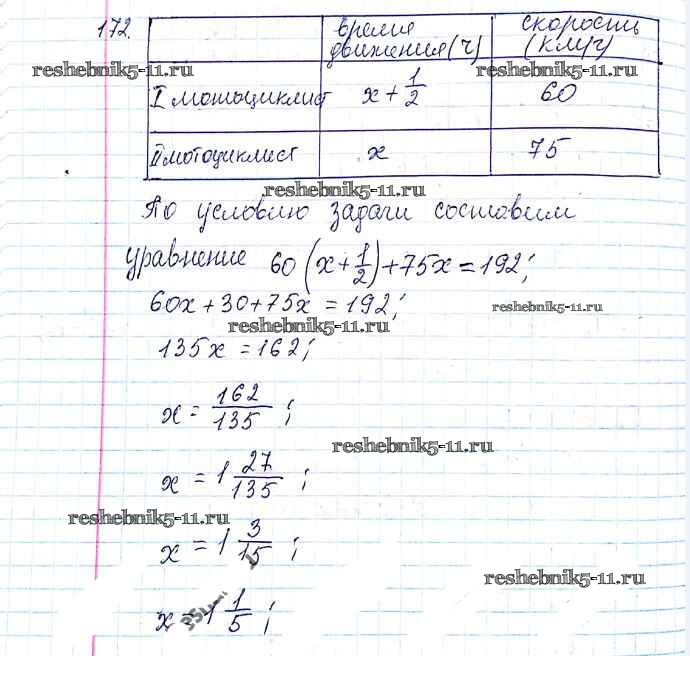 172.
время движения (ч)
скорость (км/ч)
reshebnik5-11.ru
reshebnik5-11.ru
I мотоциклист x + 1/2 60
II мотоциклист x 75
reshebnik5-11.ru
По условию задачи составим
уравнение 60(x + 1/2) + 75x = 192;
60x + 30 + 75x = 192;
reshebnik5-11.ru
reshebnik5-11.ru
135x = 162;
x = 162/135;
reshebnik5-11.ru
x = 1 27/135;
reshebnik5-11.ru
x = 1 3/15;
reshebnik5-11.ru
x = 1 1/5;